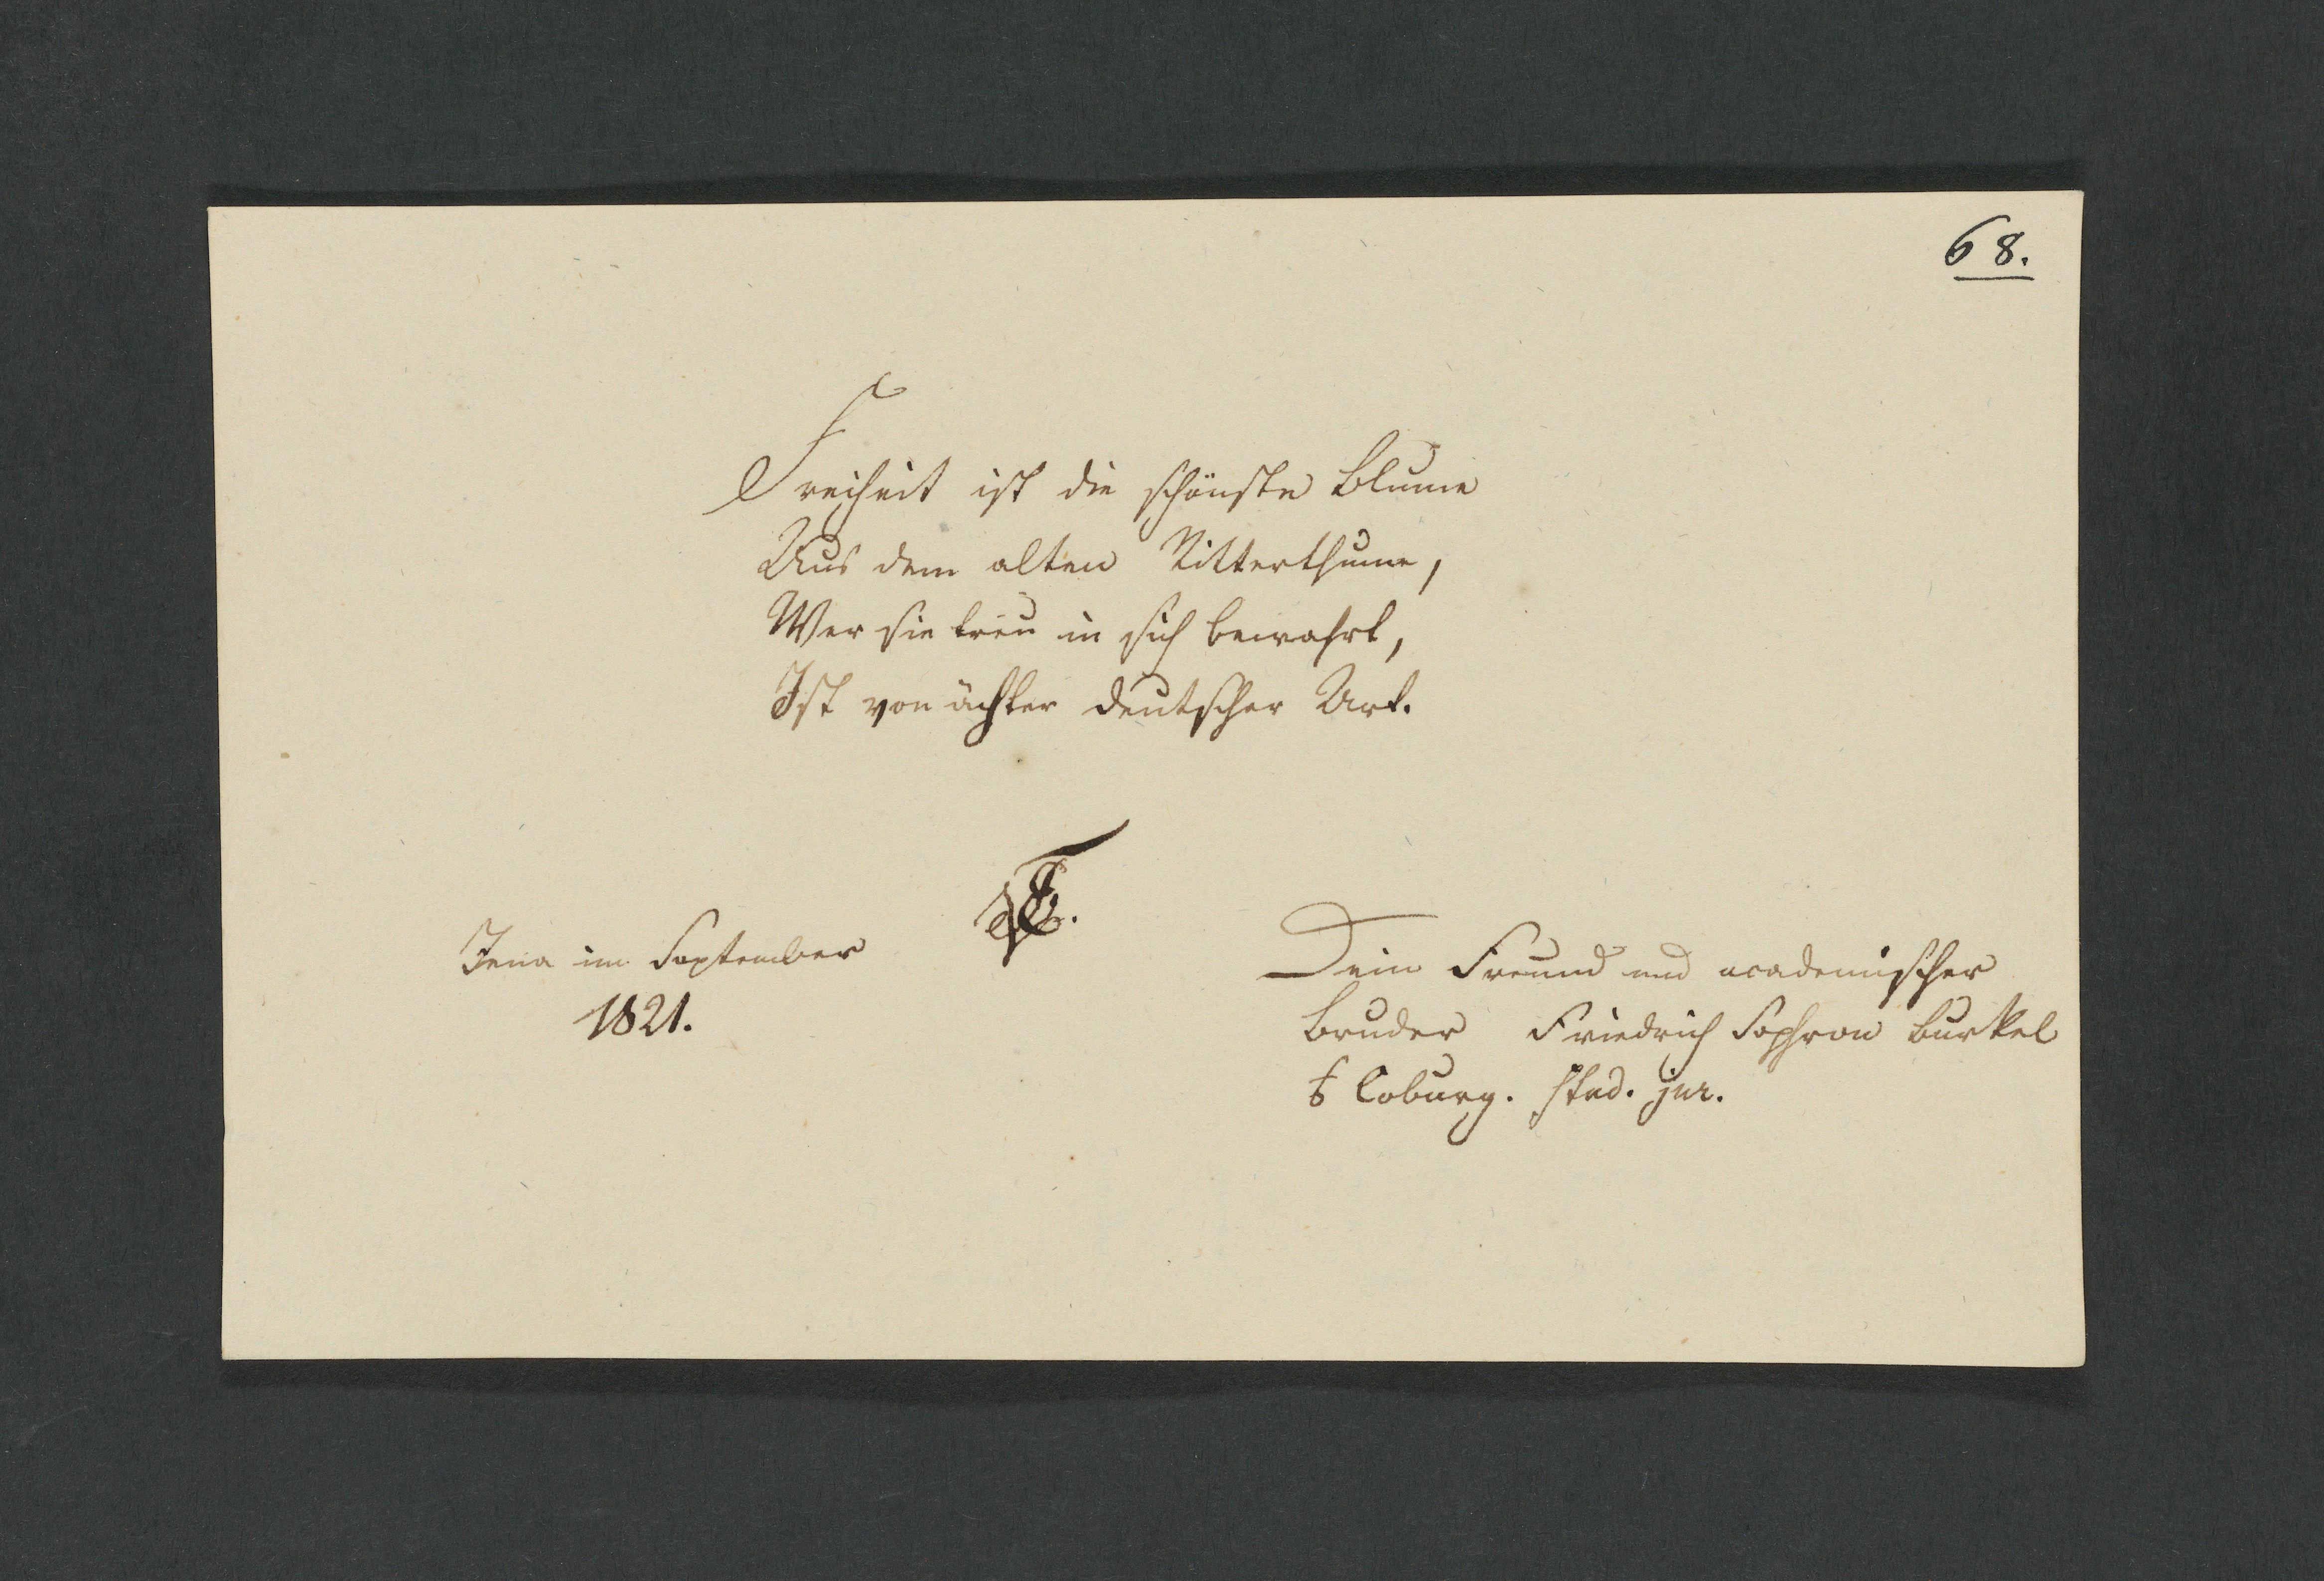 68.
Freiheit ist die schönste Blume
Aus dem alten Ritterthume,
Wer sie treu in sich bewahrt,
Ist von ächter deutscher Art.
Jena im September
1821.
Dein Freund und academischer
Bruder Friedrich Sophron Burkel
Coburg. stud. jur.